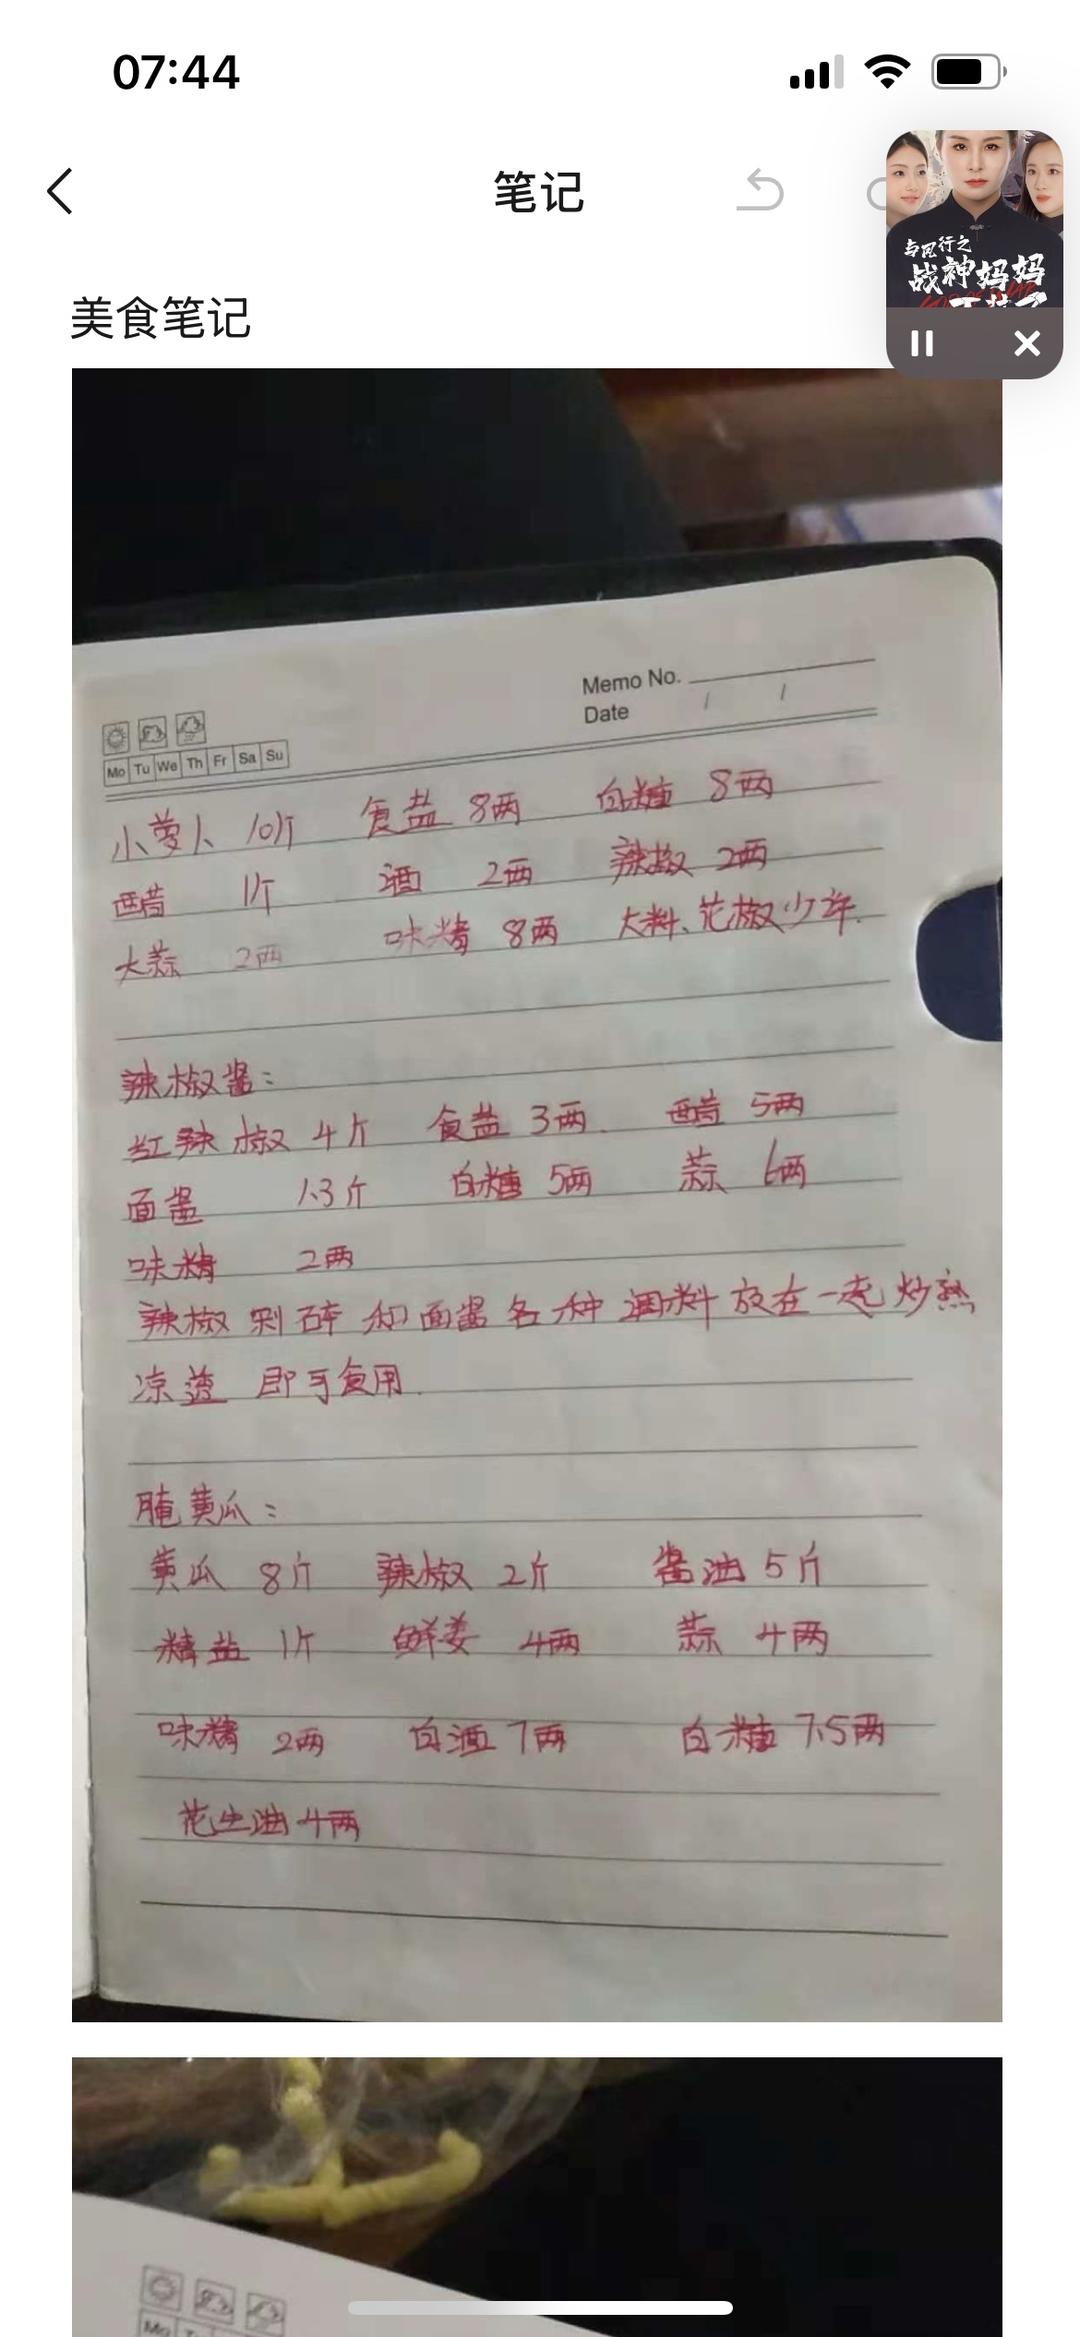 07:44
笔记
与凤行之
战神妈妈
美食笔记
Memo No.
Date / /
Mo Tu We Th Fr Sa Su
小萝卜 10斤 食盐 8两 白糖 8两
醋 1斤 酒 2两 辣椒 2两
大蒜 2两 味精 8两 大料、花椒少许.
辣椒酱:
红辣椒 4斤 食盐 3两. 醋 5两
面酱 1.3斤 白糖 5两 蒜 6两
味精 2两
辣椒剁碎和面酱各种调料放在一起炒熟
凉透 即可食用.
腌黄瓜:
黄瓜 8斤 辣椒 2斤 酱油 5斤
精盐 1斤 鲜姜 4两 蒜 4两
味精 2两 白酒 7两 白糖 7.5两
花生油 4两